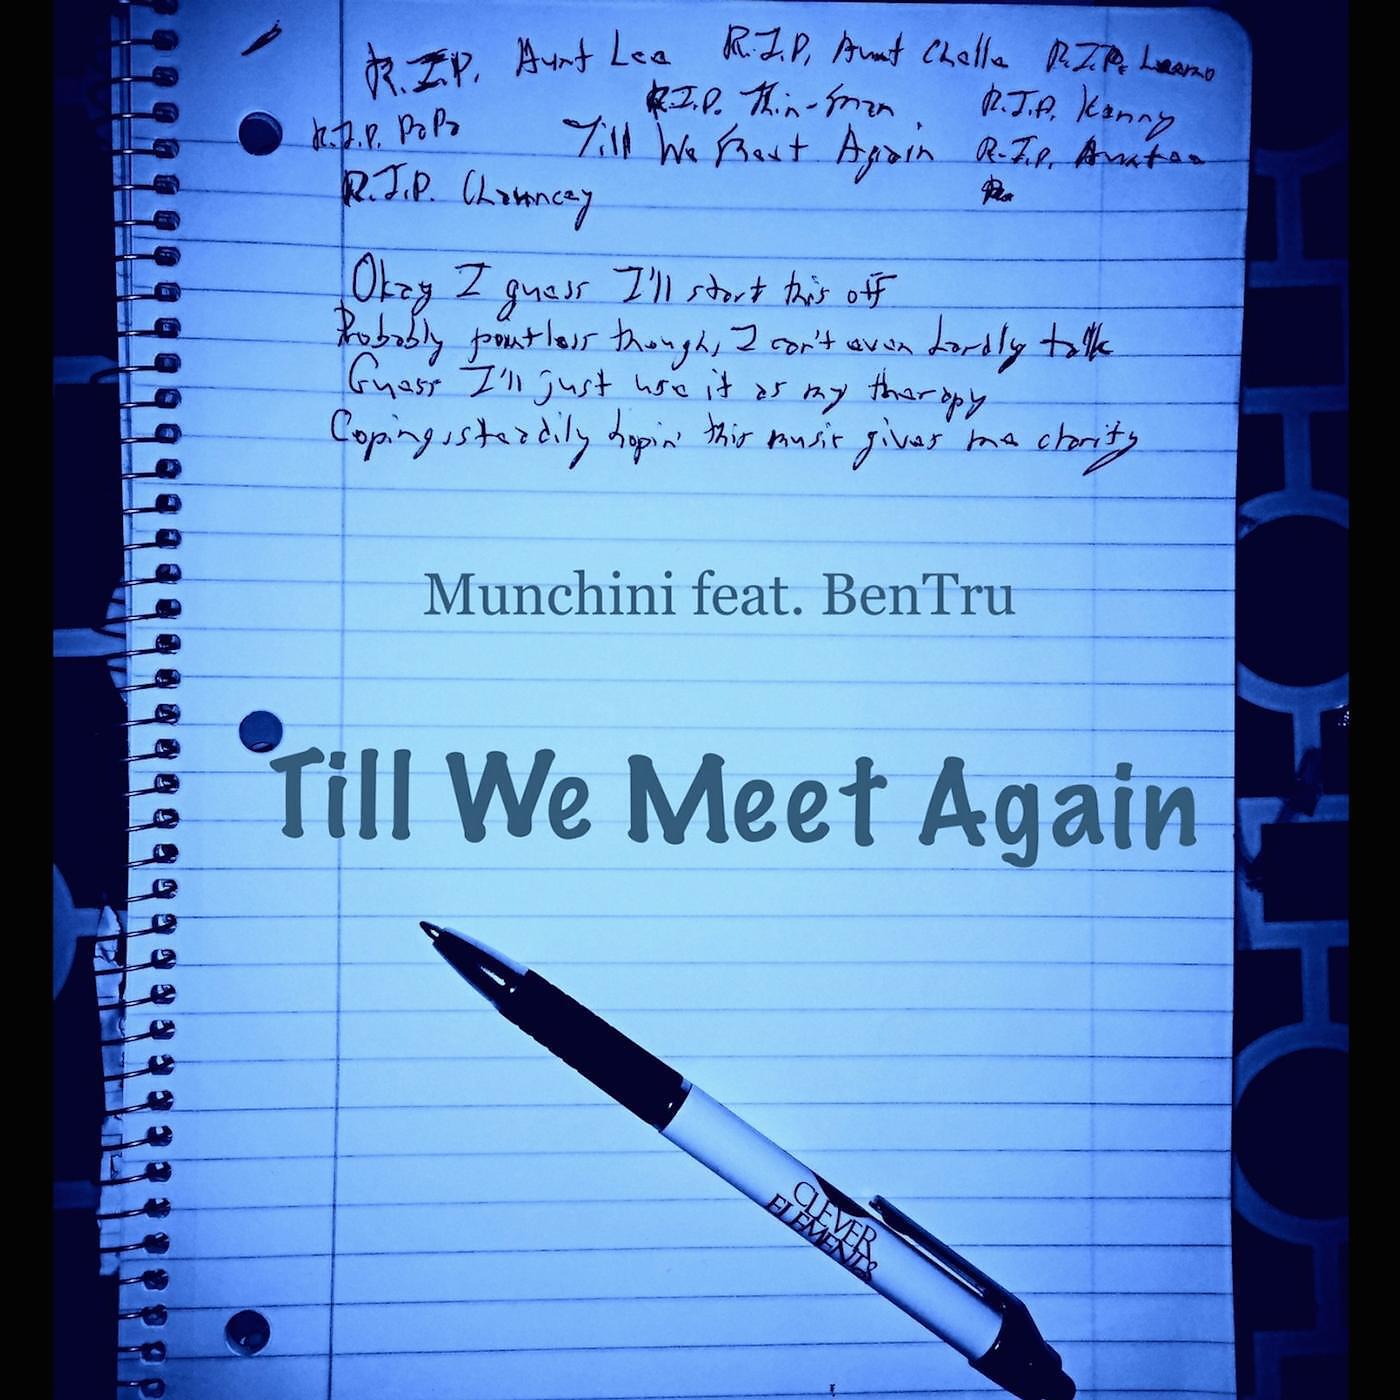 R.I.P. Aunt Lee R.I.P. Aunt Chelle R.I.P.
R.I.P. Thin-man R.I.P. Kenny
R.I.P. PaPa Till We Meet Again R.I.P.
R.I.P. Chauncey
Okay I guess I'll start this off
Probably pointless though, I can't even hardly talk
Guess I'll just use it as my therapy
Coping, steadily hopin' this music gives me clarity
Munchini feat. BenTru
Till We Meet Again
CLEVER
ELEMENTS